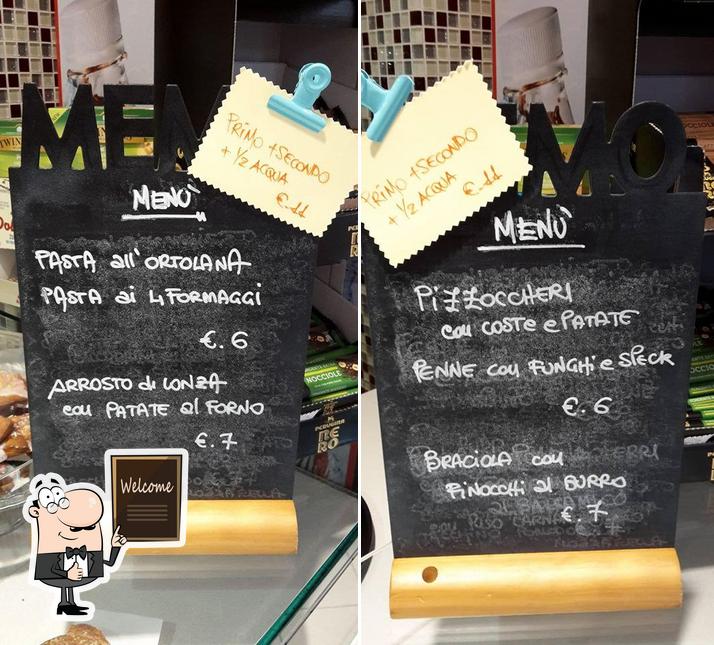 MEM
PRIMO + SECONDO
+ 1/2 ACQUA
€.11
MENÙ
PASTA all'ORTOLANA
PASTA ai 4 FORMAGGI
€. 6
ARROSTO di LONZA
con PATATE al FORNO
€. 7
Welcome
NOCCIOLE
PERUGINA
NE
RO
MO
PRIMO + SECONDO
+ 1/2 ACQUA
€.11
MENÙ
PIZZOCCHERI
con COSTE e PATATE
PENNE con FUNGHI e SPECK
€. 6
BRACIOLA con
FINOCCHI al BURRO
€. 7